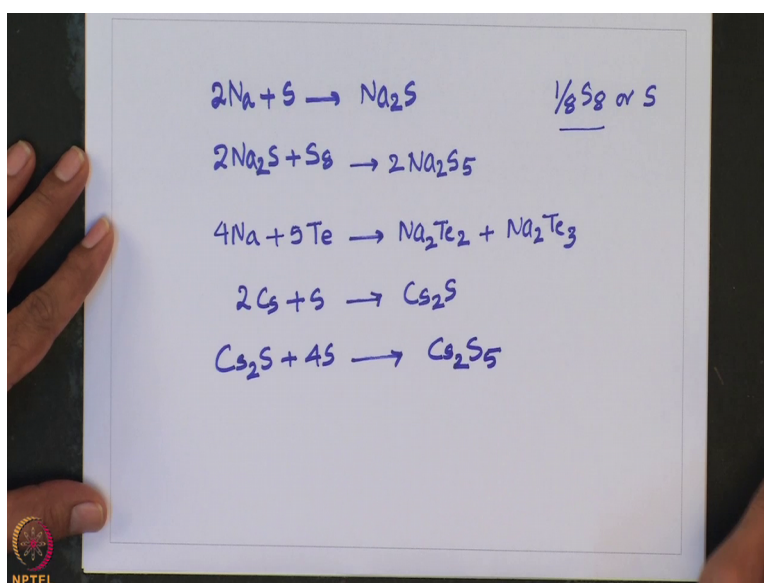 2Na + S → Na₂S
1/8 S₈ or S
2Na₂S + S₈ → 2Na₂S₅
4Na + 5Te → Na₂Te₂ + Na₂Te₃
2Cs + S → Cs₂S
Cs₂S + 4S → Cs₂S₅
NPTEL